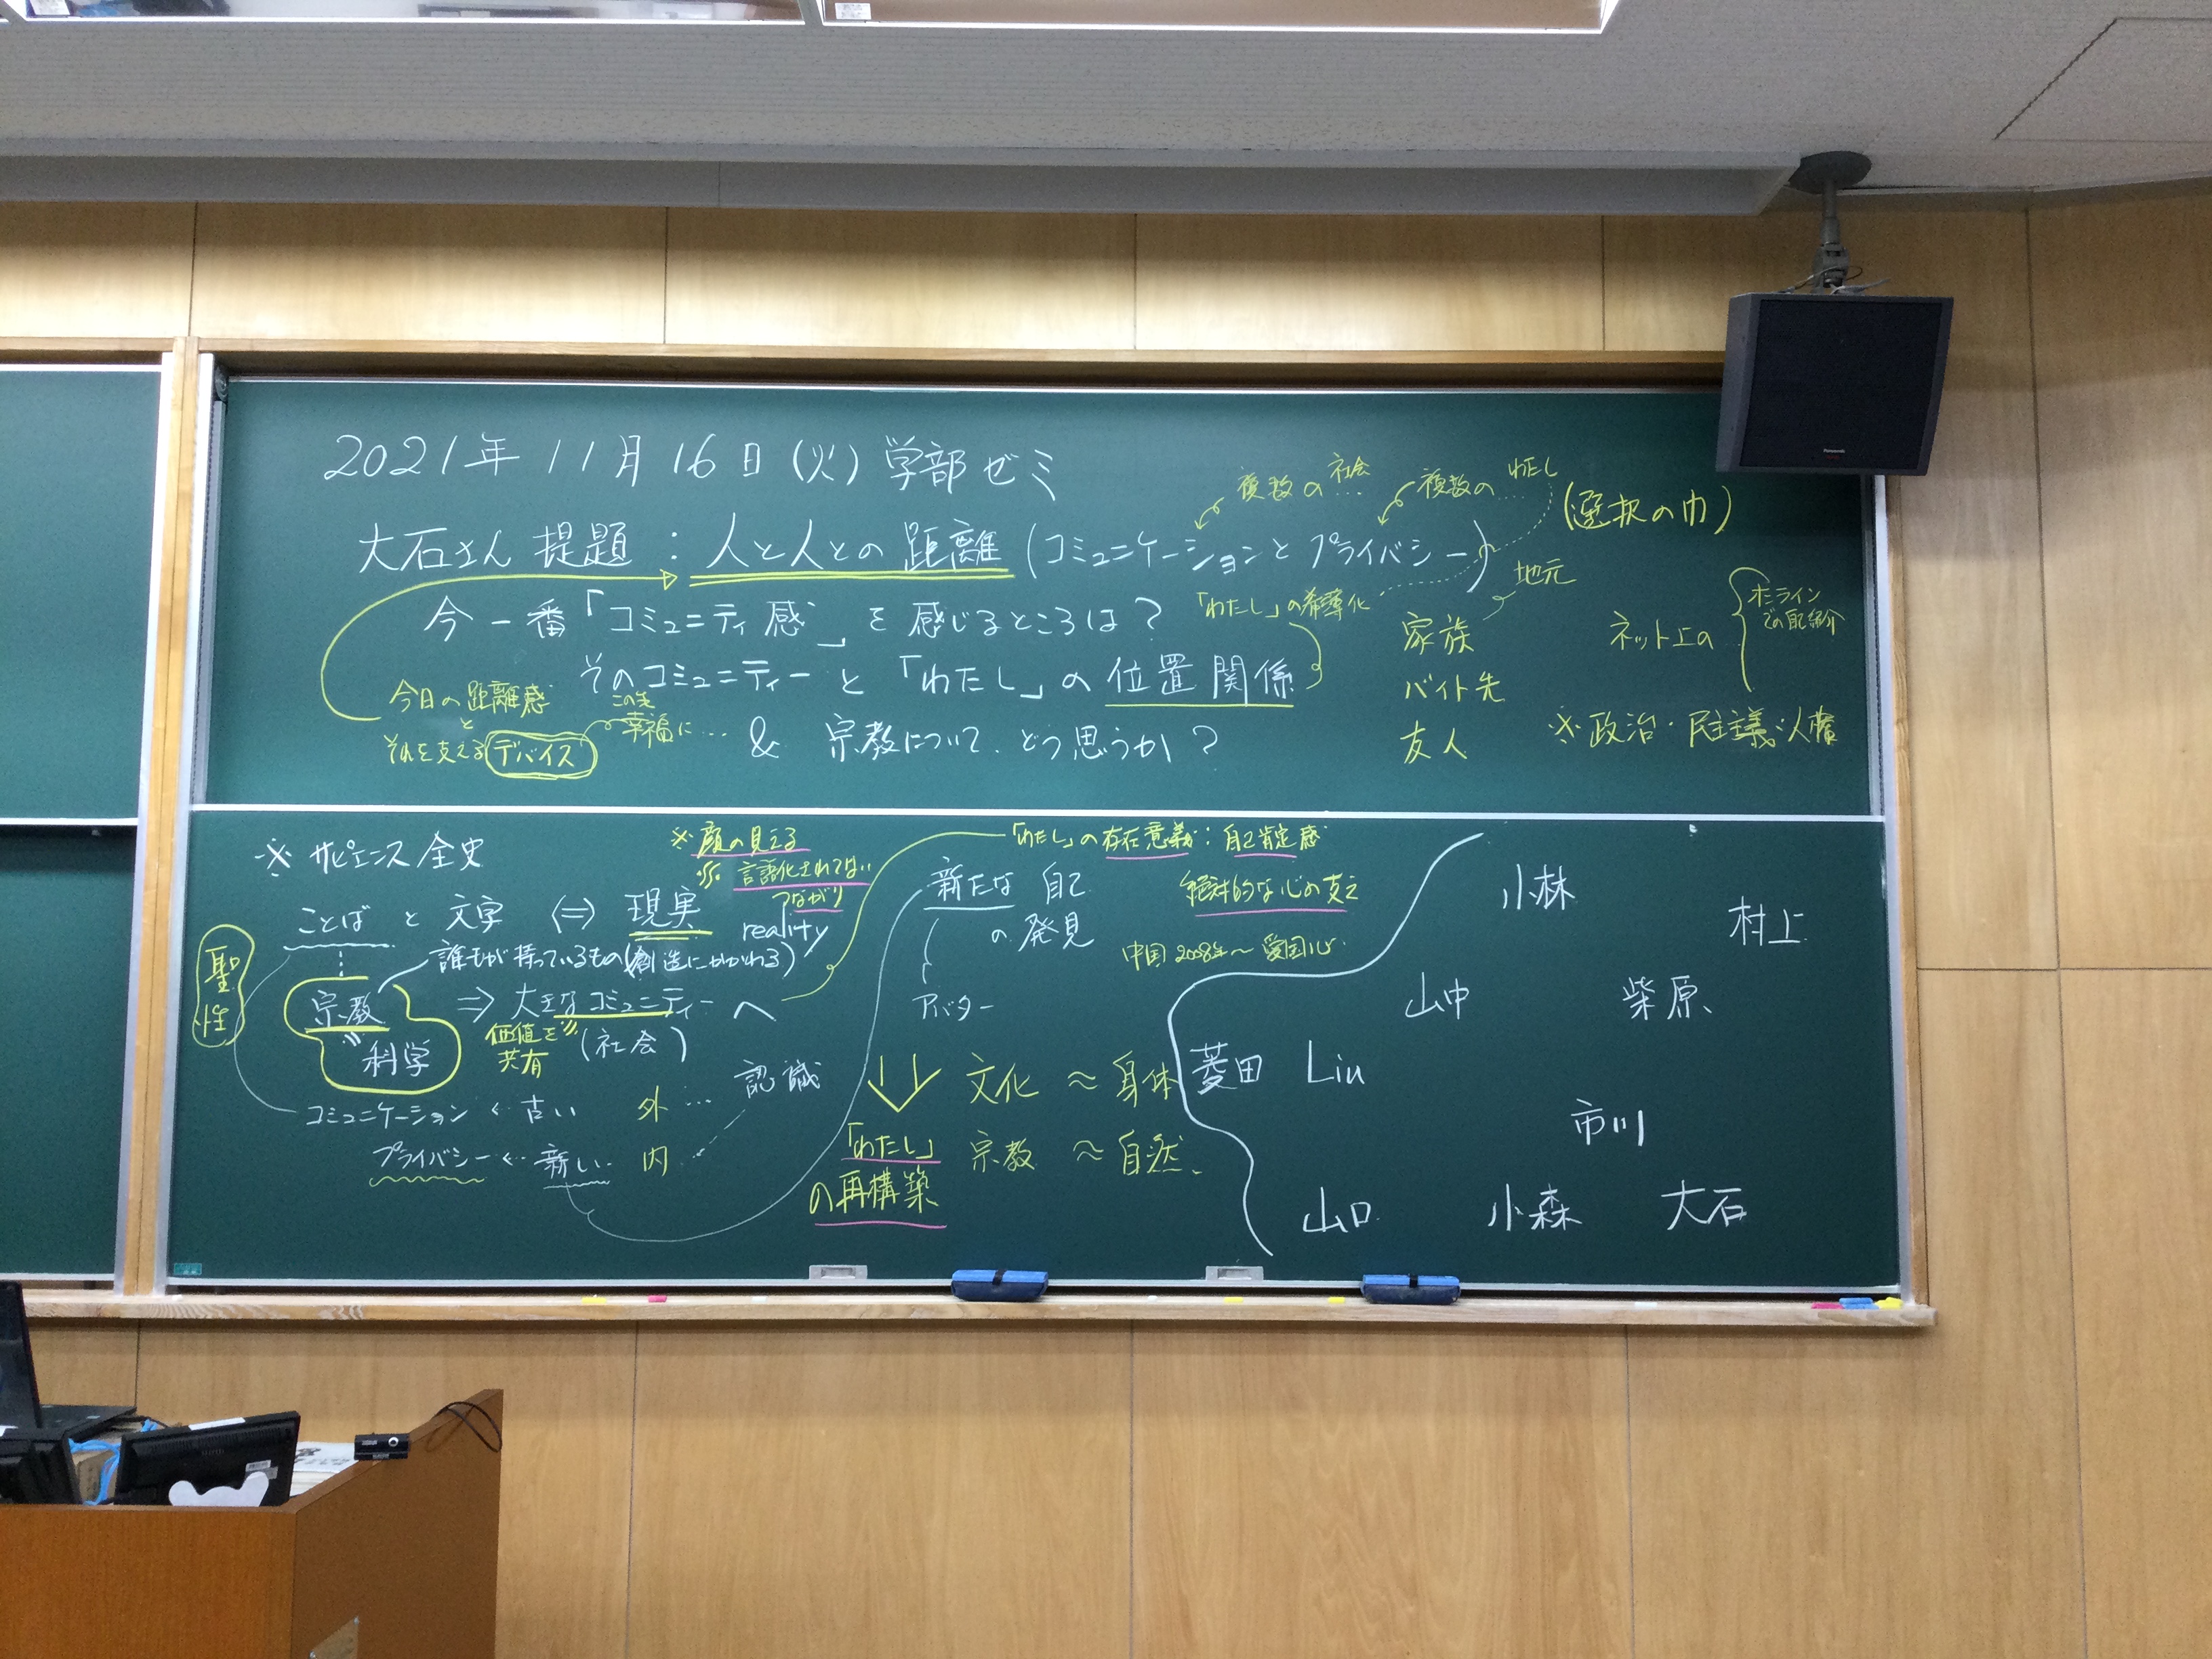 2021年 11月 16日 (火) 学部ゼミ
複数の社会…
複数のわたし
(選択の巾)
大石さん 提題 : 人と人との 距離 (コミュニケーションと プライバシー)
地元
今 一番「コミュニティ感」を 感じるところは?
「わたし」の希薄化
家族
ネット上の
オンライン
での自己紹介
そのコミュニティーと 「わたし」の 位置関係
今日の 距離感
と
それを支える デバイス
この先
幸福に…
バイト先
& 宗教について、どう思うか?
友人
※ 政治・民主主義・人権
※ サピエンス全史
※ 顔の見える
言語化されてない
つながり
「わたし」の存在意義 : 自己肯定感
新たな 自己
の 発見
絶対的な心の支え
ことば と 文字 ⇔ 現実
reality
中国 2008年〜 愛国心
聖性
誰もが 持っているもの (創造にかかわる)
宗教
科学
⇒ 大きなコミュニティーへ
価値を
共有
(社会)
アバター
認識
コミュニケーション ← 古い 外 …
プライバシー ← 新しい 内
文化 ≈ 身体
「わたし」
の再構築
宗教 ≈ 自然
小林
村上
山中
柴原
菱田 Liu
市川
山口 小森 大石
Panasonic